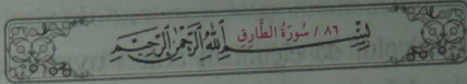 ٨٦ / سُورَةُ الطَّارِقِ
بِسْمِ اللَّهِ الرَّحْمَٰنِ الرَّحِيمِ